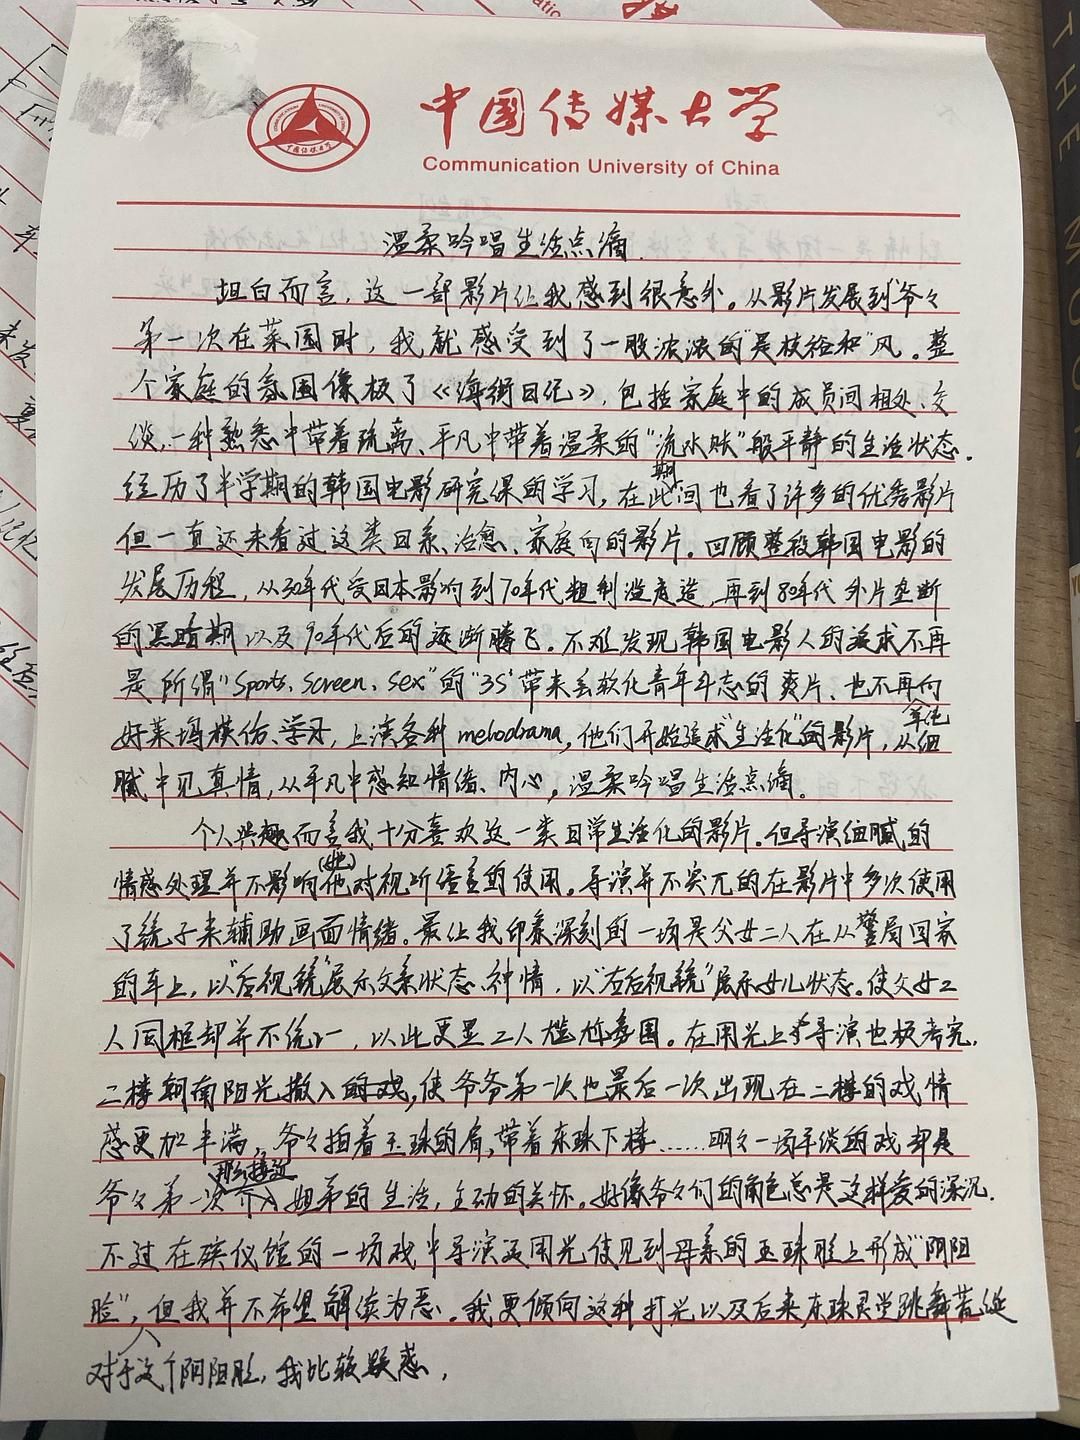 中国传媒大学
Communication University of China
温柔吟唱生活点滴.
坦白而言，这一部影片让我感到很意外。从影片发展到爷々
第一次在菜园时，我就感受到了一股浓浓的"是枝裕和"风。整
个家庭的氛围像极了《海街日记》，包括家庭中的成员间相处、交
谈，一种熟悉中带着疏离、平凡中带着温柔的"流水账"般平静的生活状态.
经历了半学期的韩国电影研究课的学习，在此期间也看了许多的优秀影片
但一直还未看过这类日系、治愈、家庭向的影片。回顾整段韩国电影的
发展历程，从30年代受日本影响到70年代粗制滥造，再到80年代外片垄断
的黑暗期以及90年代后的逐渐腾飞。不难发现韩国电影人的追求不再
是所谓"Sports、Screen、Sex"的"3S"带来丢软化青年斗志的爽片、也不再向
好莱坞模仿、学习，上演各种melodrama，他们开始追求"生活化"的影片，从细
腻中见真情，从平凡中感知情绪、内心，温柔吟唱生活点滴。
个人兴趣而言我十分喜欢这一类日常生活化的影片。但导演细腻的
情感处理并不影响他(她)对视听语言的使用。导演并不突兀的在影片中多次使用
了镜子来辅助画面情绪。最让我印象深刻的一场是父女二人在从警局回家
的车上，以"后视镜"展示父亲状态、神情，以"右后视镜"展示女儿状态。使父女二
人同框却并不统一，以此更显二人尴尬氛围。在用光上导演也极考究.
二楼朝南阳光撒入的戏，使爷爷第一次也最后一次出现在二楼的戏情
感更加丰满，爷々拍着玉珠的肩，带着东珠下楼……明々一场平淡的戏却是
爷々第一次那么接近姐弟的生活，主动的关怀。好像爷々们的角色总是这样爱的深沉.
不过在殡仪馆的一场戏中导演运用光使见到母亲的玉珠脸上形成"阴阳
脸"，但我并不希望解读为恶。我更倾向这种打光以及后来东珠灵堂跳舞
对于这个阴阳脸，我比较疑惑，